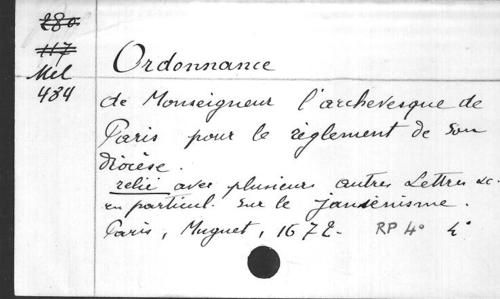 280
117
Mel
434
Ordonnance
de Monseigneur l'archevesque de
Paris pour le règlement de son
diocèse.
relié avec plusieurs autres Lettres &c.
en particul. sur le jansénisme.
Paris, Muguet, 1672. RP 4° 4°